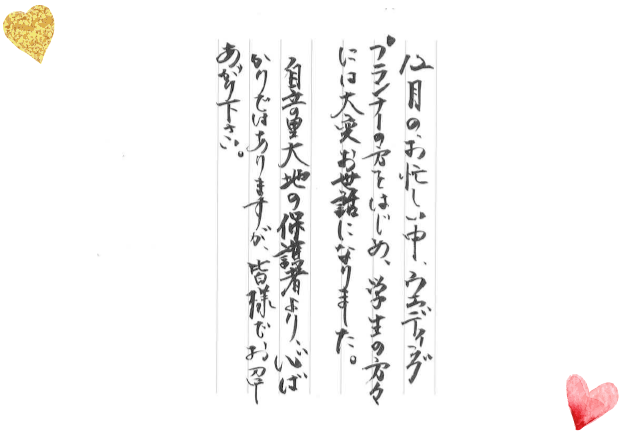 12月のお忙しい中、ウエディング
プランナーの方をはじめ、学生の方々
には大変お世話になりました。
自立の里大地の保護者より、心ば
かりではありますが、皆様でお召
あがり下さい。